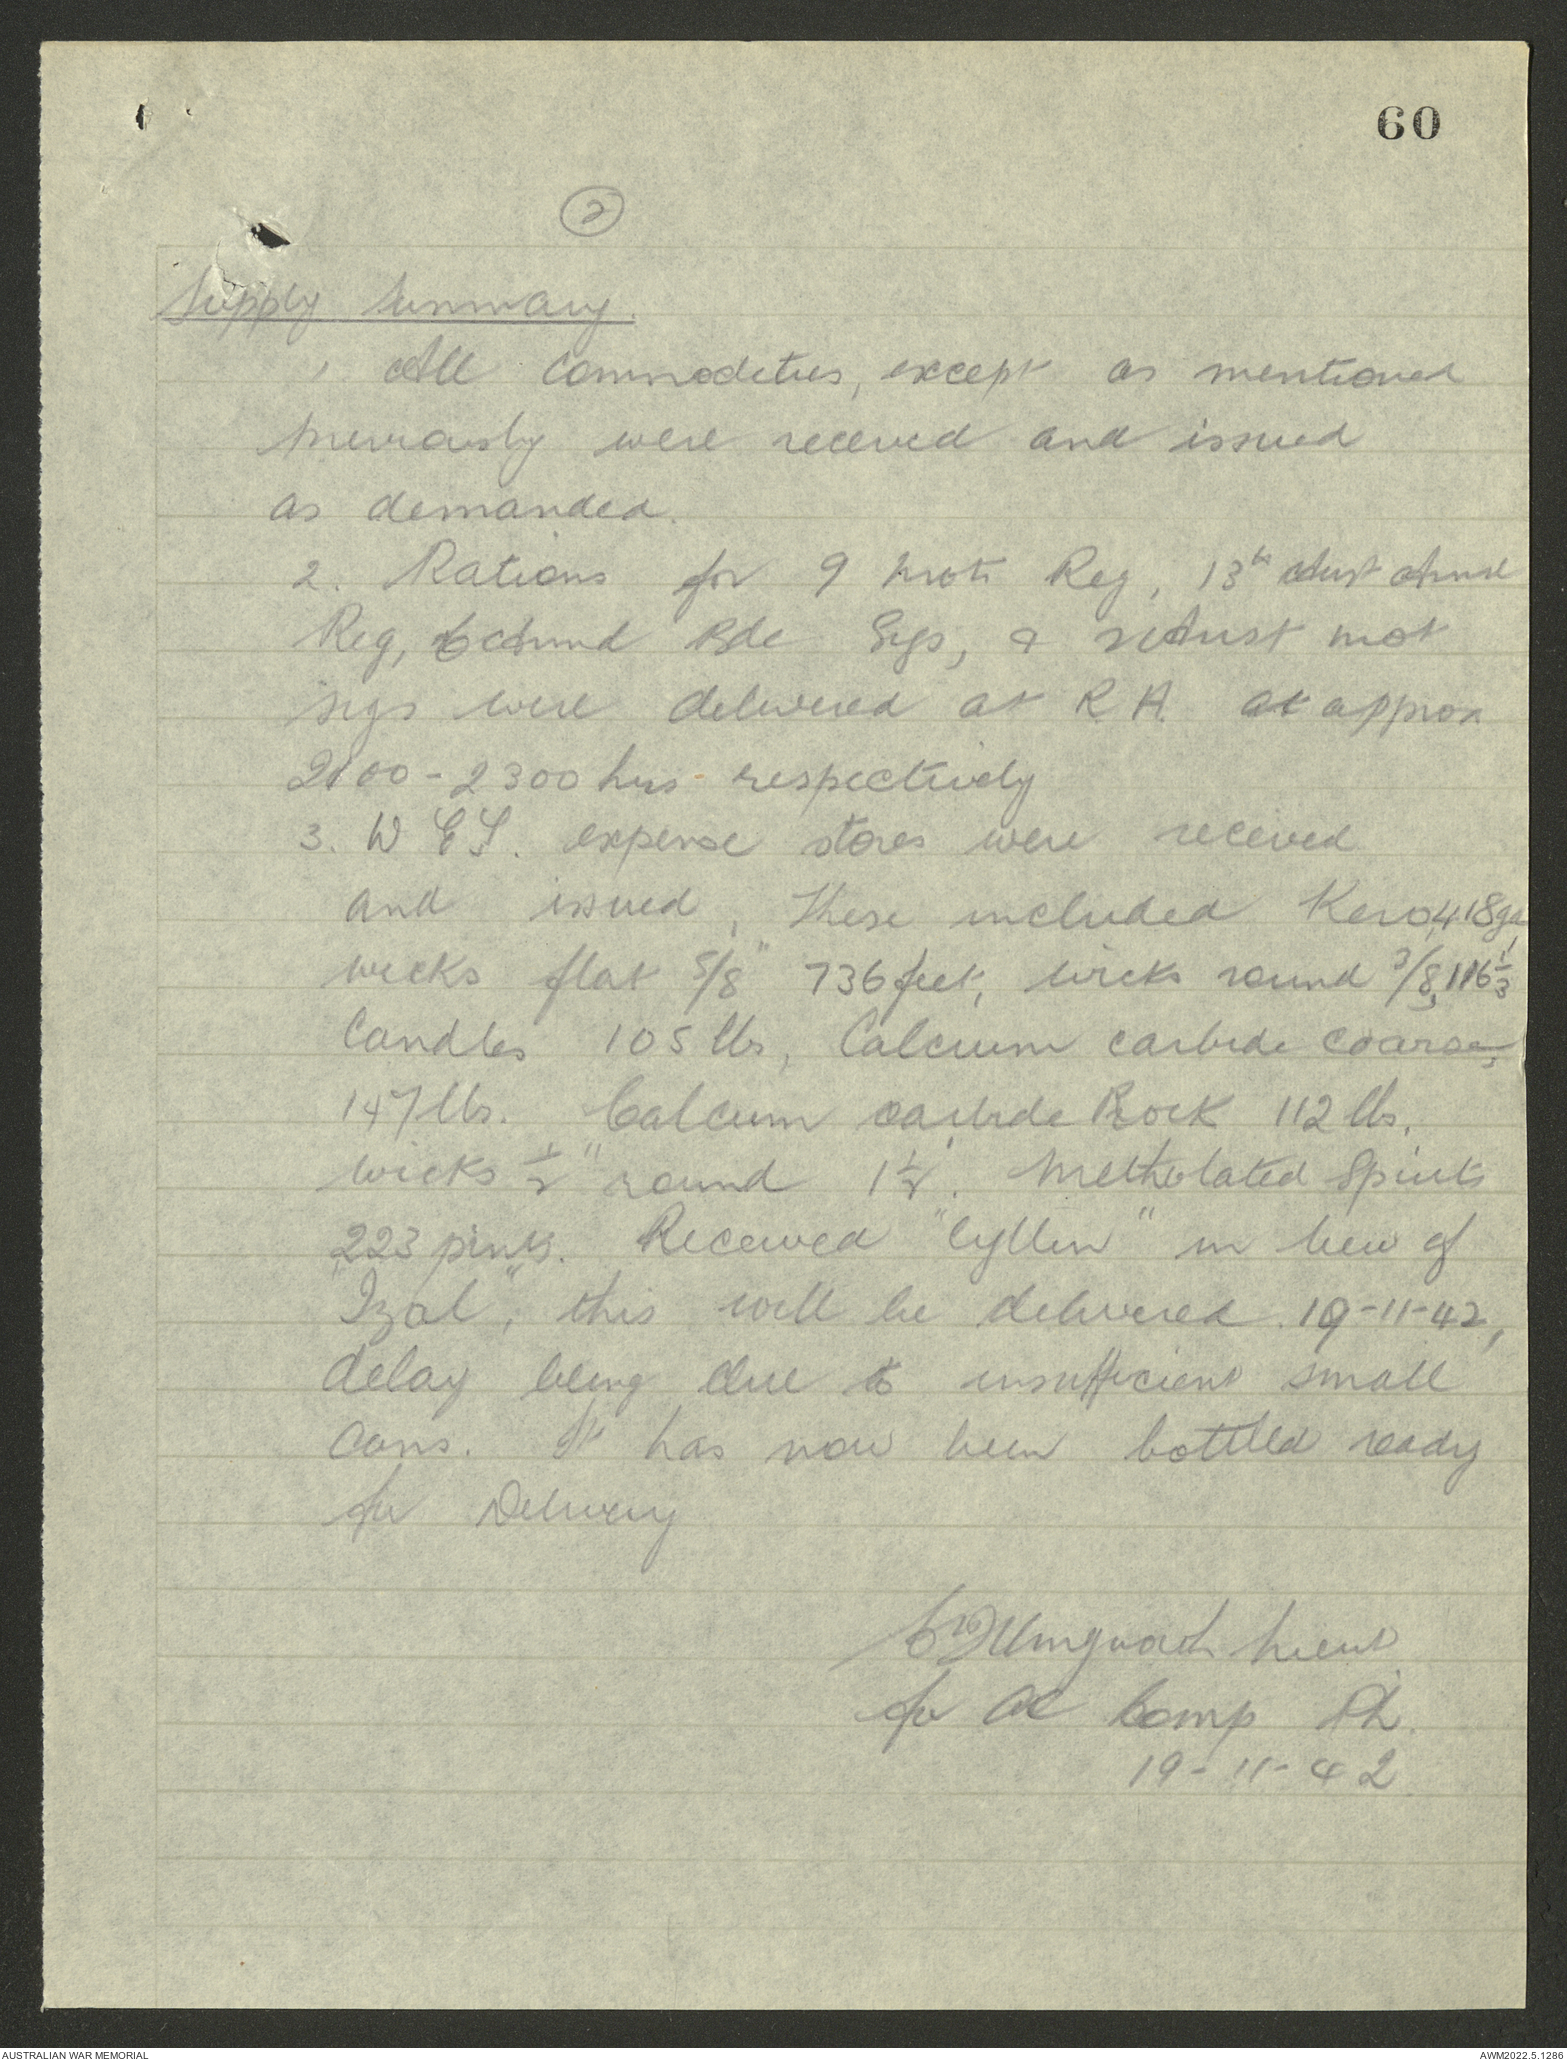 60
2
Supply Summary.
1 All commodities, except as mentioned
previously were received and issued
as demanded.
2. Rations for 9 Mot Reg, 13th Aust Armd
Reg, 6 Armd Bde Sigs, & 2 Aust mot
sigs were delivered at R.H. at approx
2100 - 2300 hrs - respectively
3. W E S. expense stores were received
and issued, These included Kero, 418 ga
wicks flat 5/8" 736 feet, wicks round 3/8, 116 1/3
Candles 105 lbs, Calcium carbide coarse,
147 lbs. Calcium carbide Rock 112 lbs.
wicks 1/2" round 1 1/2'. Metholated Spirits
223 pints. Received "Cyllin" in lieu of
"Izal", this will be delivered 19-11-42,
delay being due to insufficient small
cans. It has now been bottled ready
for Delivery
Illingworth Lieut
for OC Comp Pl.
19-11-42
AUSTRALIAN WAR MEMORIAL
AWM2022.5.1286